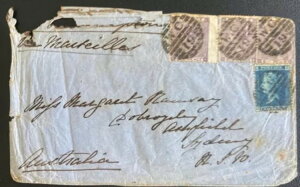 Via Marseilles
Miss Margaret Ramsay
Dobroyde
Ashfield
Sydney
N.S.W.
Australia